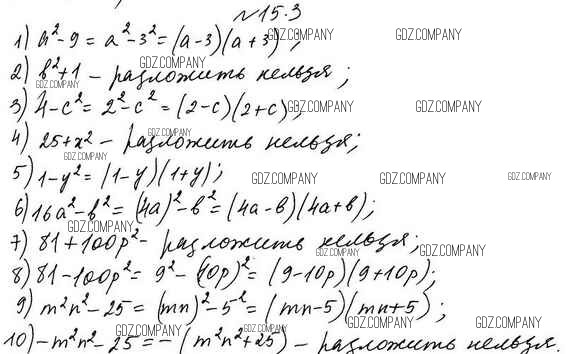 №15.3
1) a² - 9 = a² - 3² = (a - 3)(a + 3);
2) b² + 1 - разложить нельзя;
3) 4 - c² = 2² - c² = (2 - c)(2 + c);
4) 25 + x² - разложить нельзя;
5) 1 - y² = (1 - y)(1 + y);
6) 16a² - b² = (4a)² - b² = (4a - b)(4a + b);
7) 81 + 100p² - разложить нельзя;
8) 81 - 100p² = 9² - (10p)² = (9 - 10p)(9 + 10p);
9) m²n² - 25 = (mn)² - 5² = (mn - 5)(mn + 5);
10) - m²n² - 25 = - (m²n² + 25) - разложить нельзя.
GDZ.COMPANY GDZ.COMPANY
GDZ.COMPANY
GDZ.COMPANY
GDZ.COMPANY GDZ.COMPANY
GDZ.COMPANY
GDZ.COMPANY
GDZ.COMPANY GDZ.COMPANY GDZ.COMPANY
GDZ.COMPANY
GDZ.COMPANY GDZ.COMPANY
GDZ.COMPANY GDZ.COMPANY GDZ.COMPANY GDZ.COMPANY